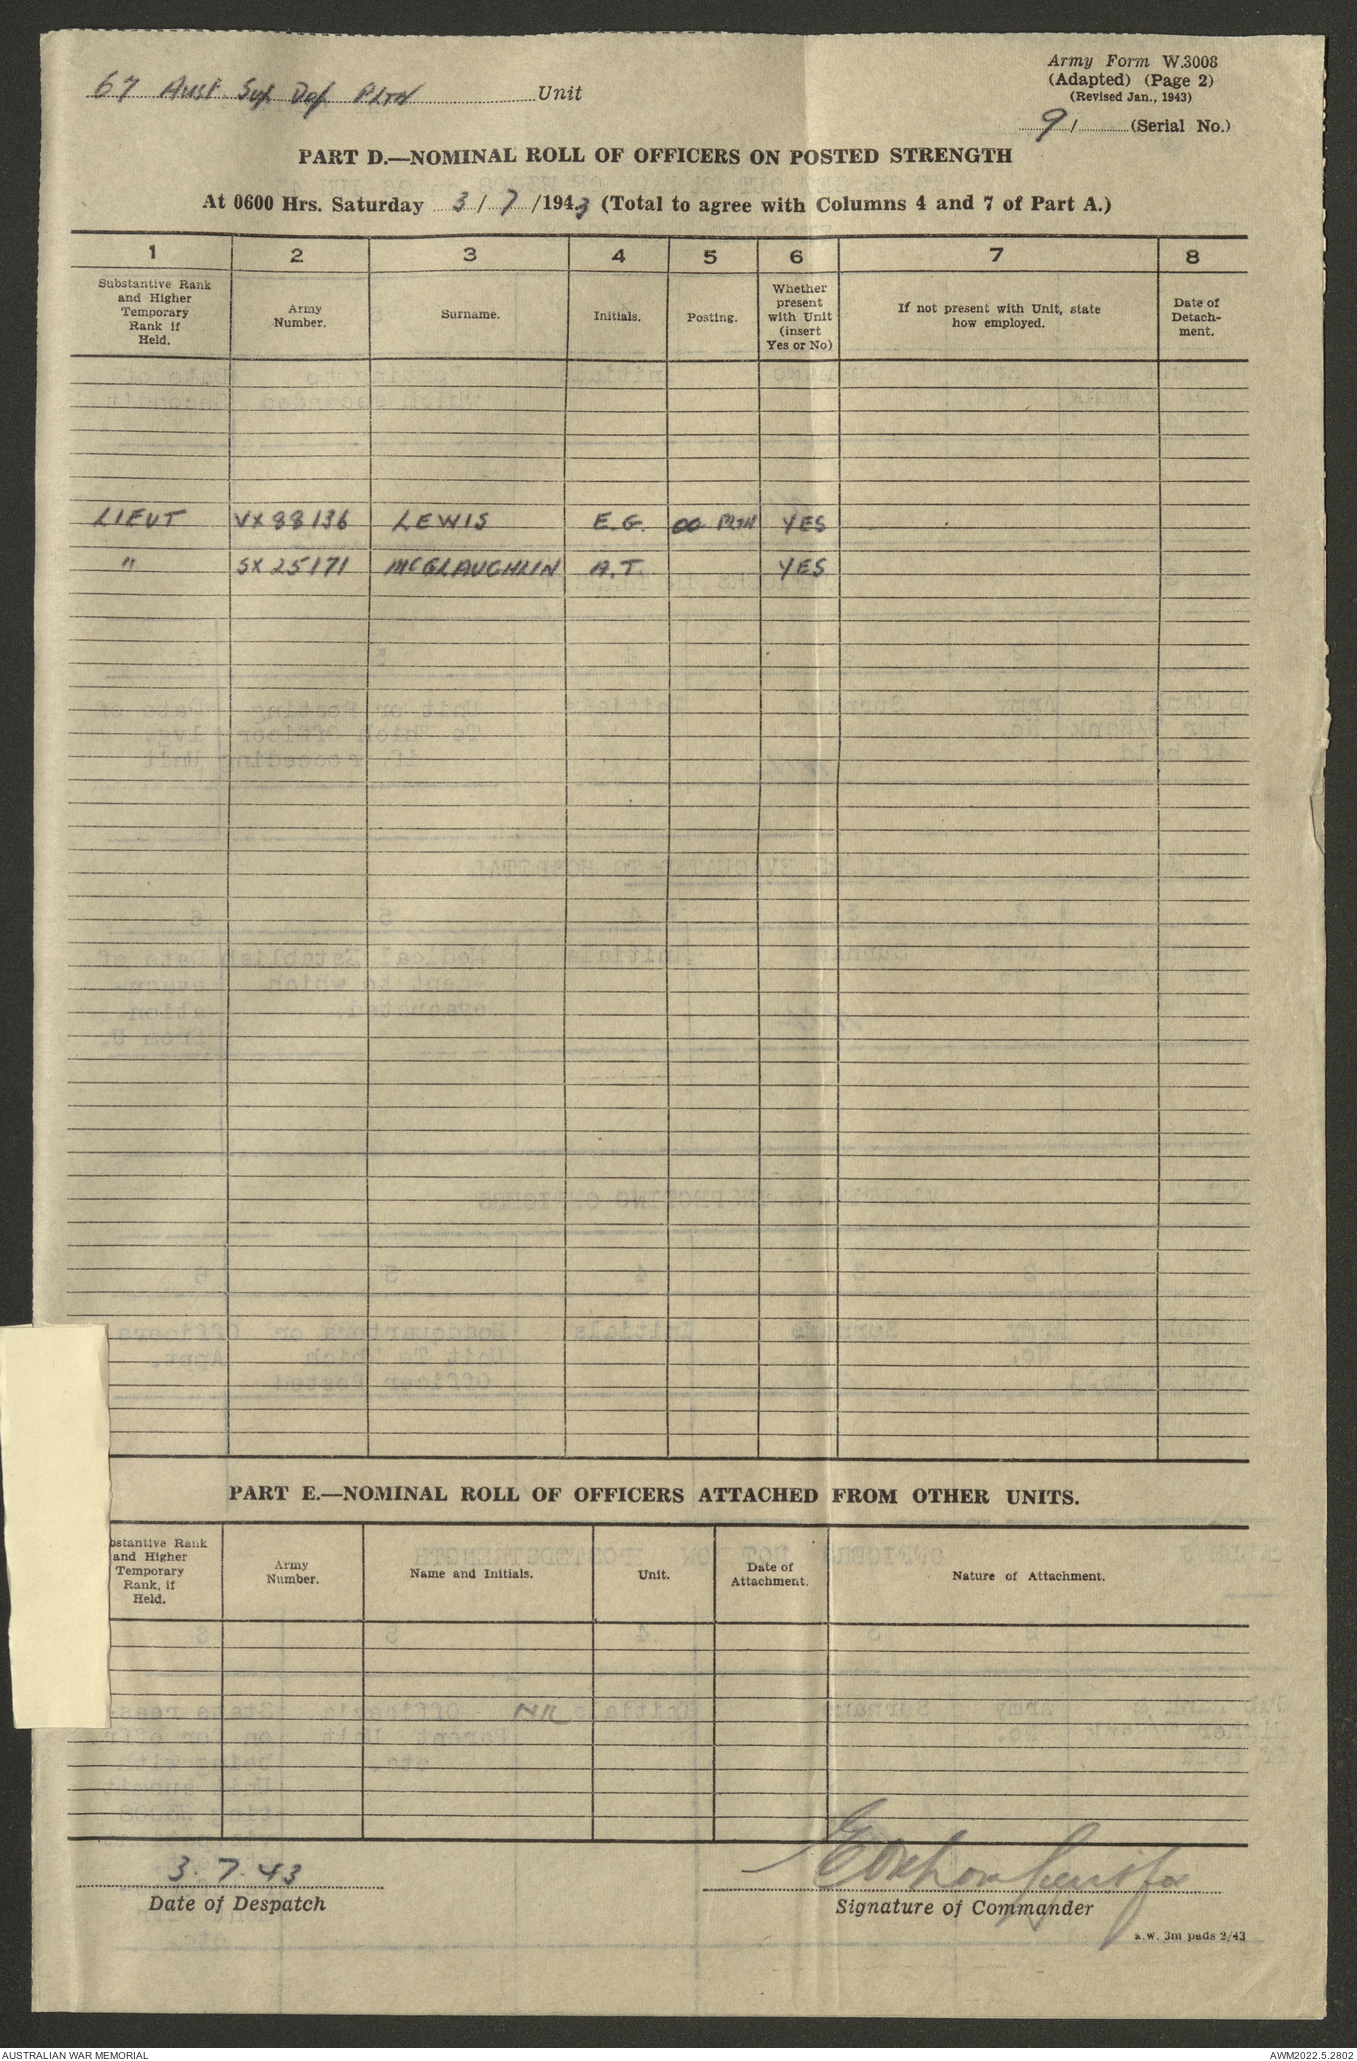 Army Form W.3008
67 Aust. Sup Dep PLTN Unit
(Adapted) (Page 2)
(Revised Jan., 1943)
9/ (Serial No.)
PART D.—NOMINAL ROLL OF OFFICERS ON POSTED STRENGTH
At 0600 Hrs. Saturday 3/7/1943 (Total to agree with Columns 4 and 7 of Part A.)
1 2 3 4 5 6 7 8
Substantive Rank and Higher Temporary Rank if Held. Army Number. Surname. Initials. Posting. Whether present with Unit (insert Yes or No) If not present with Unit, state how employed. Date of Detach-ment.
LIEUT VX88136 LEWIS E.G. OC PLTN YES
" SX25171 McGLAUGHLIN A.T. YES
PART E.—NOMINAL ROLL OF OFFICERS ATTACHED FROM OTHER UNITS.
bstantive Rank and Higher Temporary Rank, if Held. Army Number. Name and Initials. Unit. Date of Attachment. Nature of Attachment.
NIL
3.7.43
Date of Despatch
Signature of Commander
a.w. 3m pads 2/43
AUSTRALIAN WAR MEMORIAL
AWM2022.5.2802